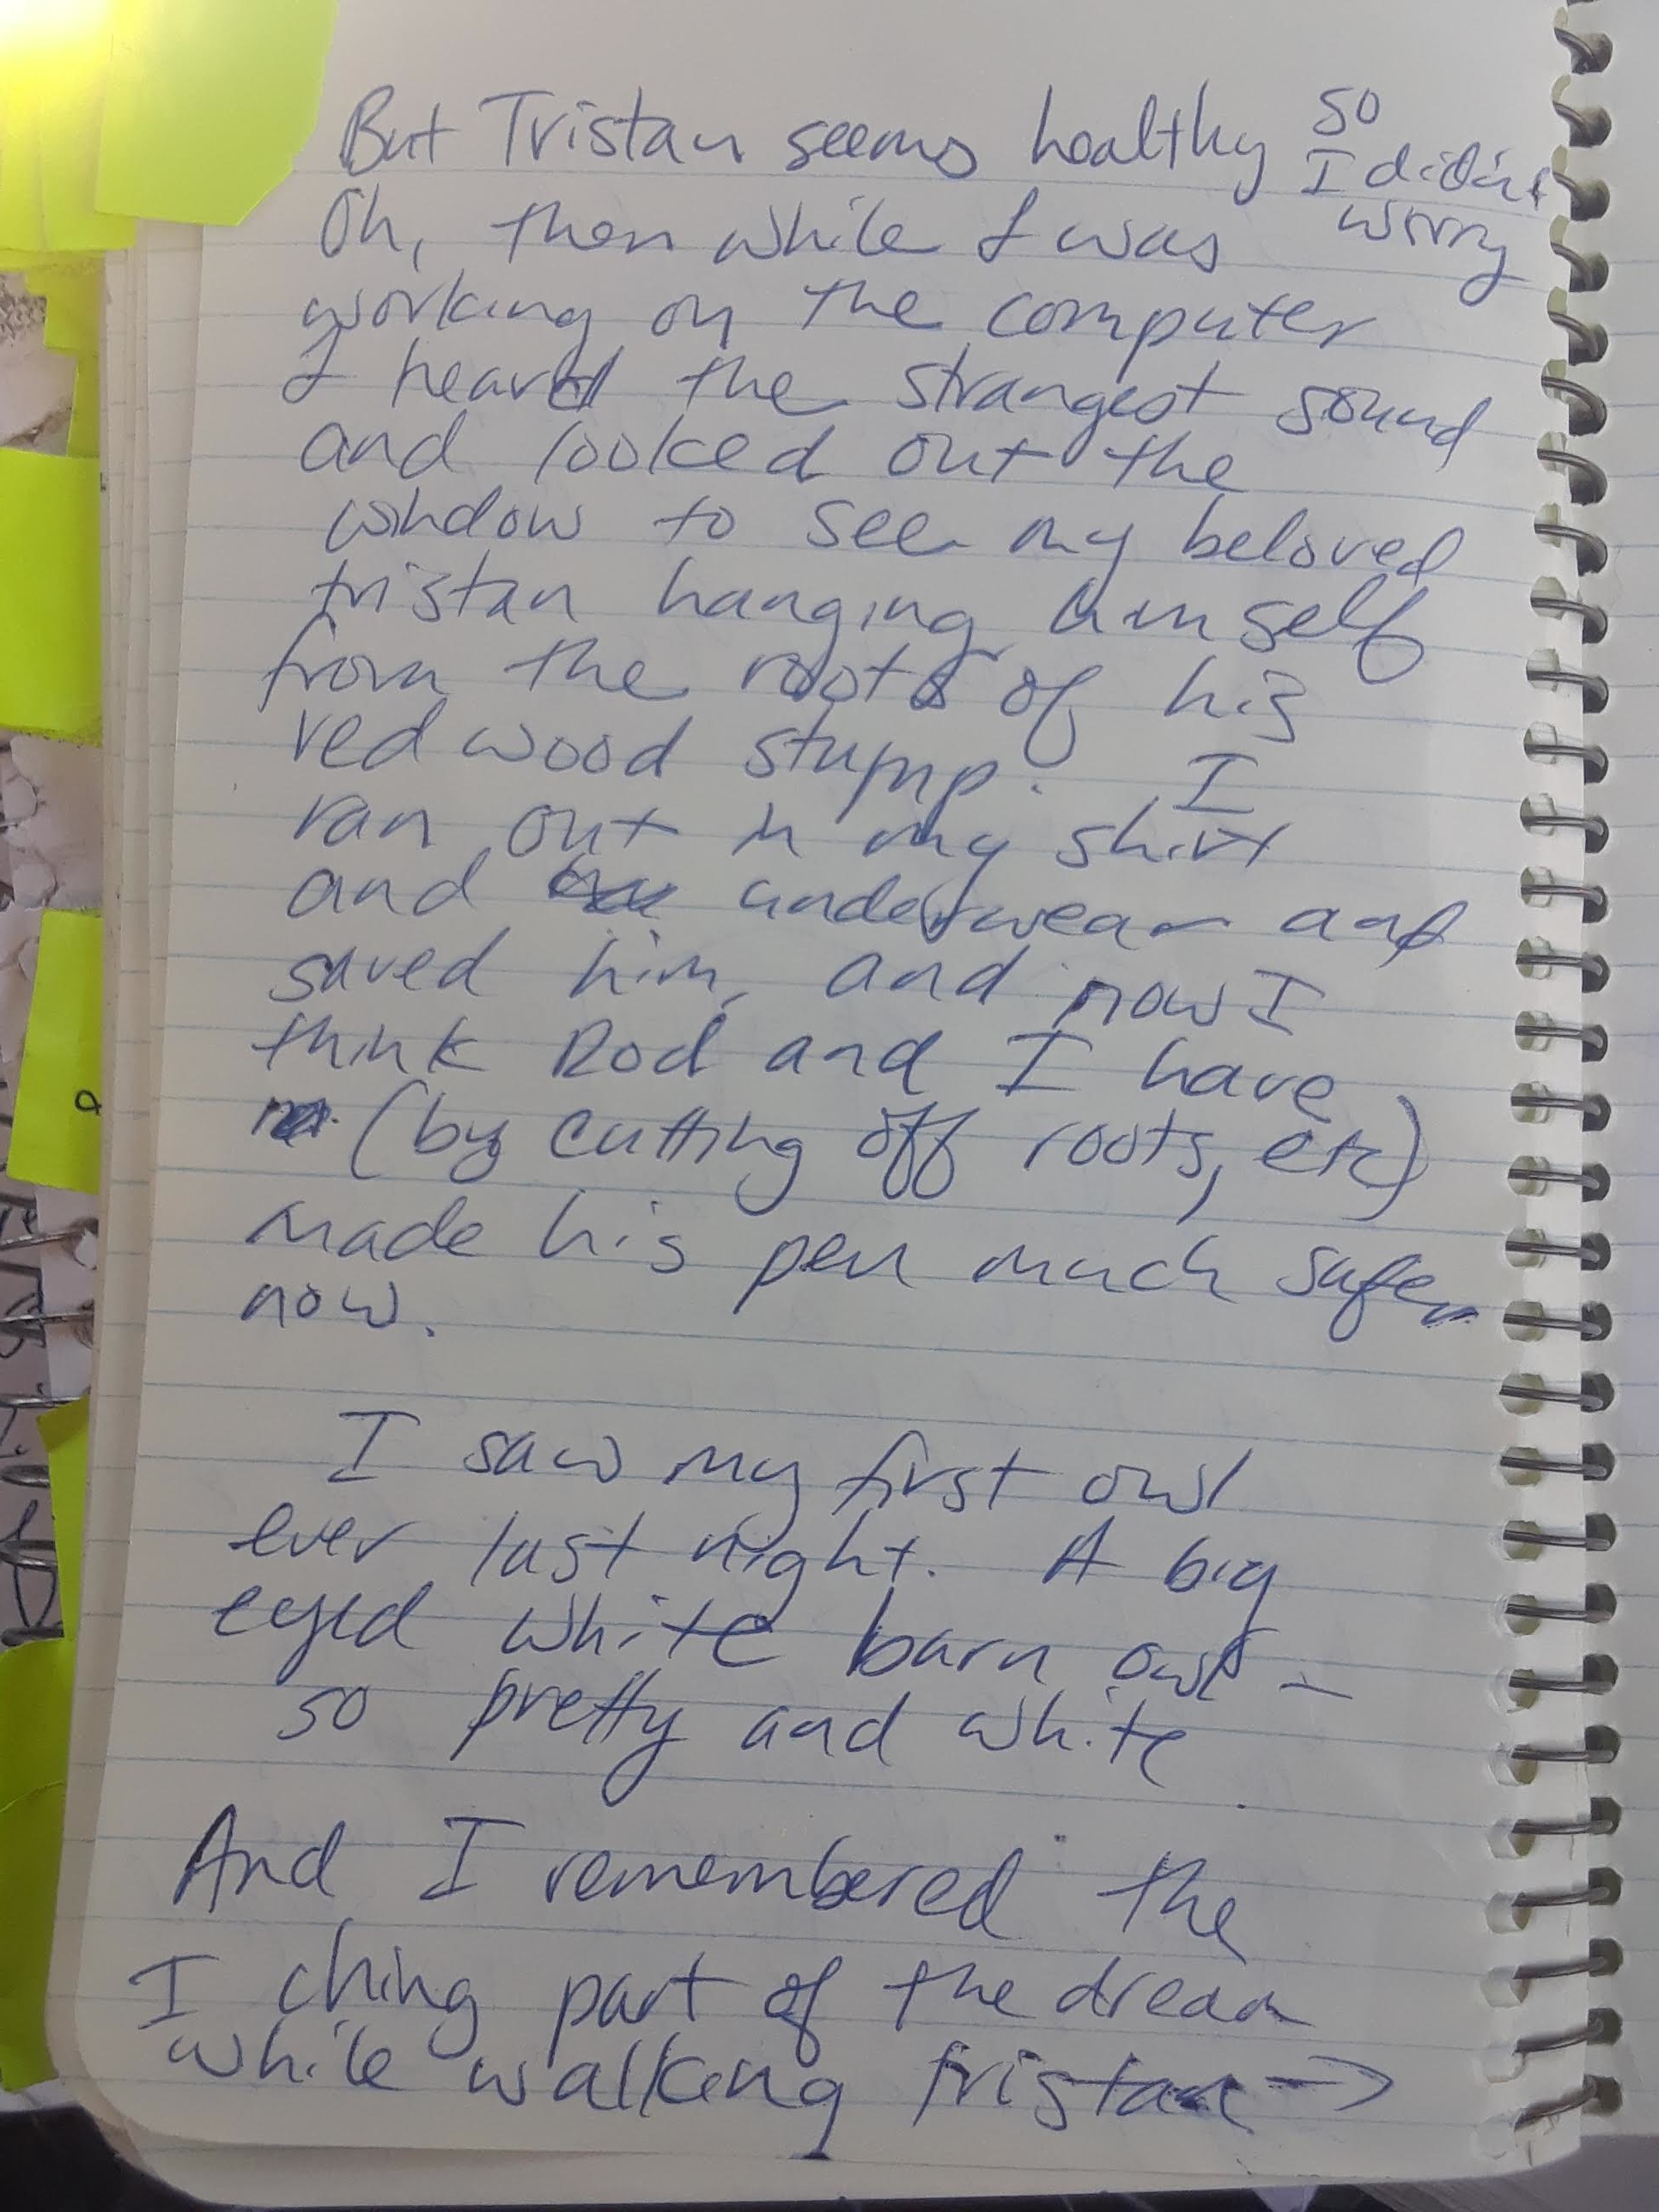 But Tristan seems healthy so
I didn't
worry
Oh, then while I was
working on the computer
I heard the strangest sound
and looked out the
window to see my beloved
tristan hanging himself
from the roots of his
redwood stump. I
ran out in my shirt
and underwear and
saved him, and now I
think Rod and I have
(by cutting off roots, etc)
made his pen much safer
now.
I saw my first owl
ever last night. A big
eyed white barn owl –
so pretty and white.
And I remembered the
I ching part of the dream
while walking tristan →